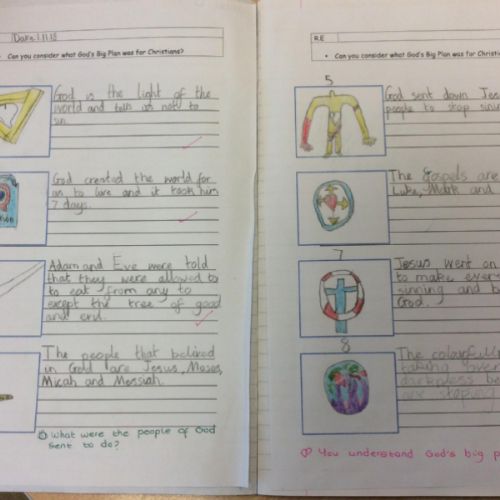 Date 1.11.18
• Can you consider what God's Big Plan was for Christians?
God is the light of the
world and tells us not to
sin.
God created the world for
us to live and it took him
7 days.
Adam and Eve were told
that they were allowed to
to eat from any to
except the tree of good
and
The people that belived
in God are Jesus, Moses,
Micah and Messiah.
What were the people of God
sent to do?
RE
• Can you consider what God's Big Plan was for Christians
5
God sent down Jes
people to stop
The gospels are
Luke, Mark and
7
Jesus went on
to make every
sinning and b
God.
8
The
taking over
darkness
are
You understand God's big p